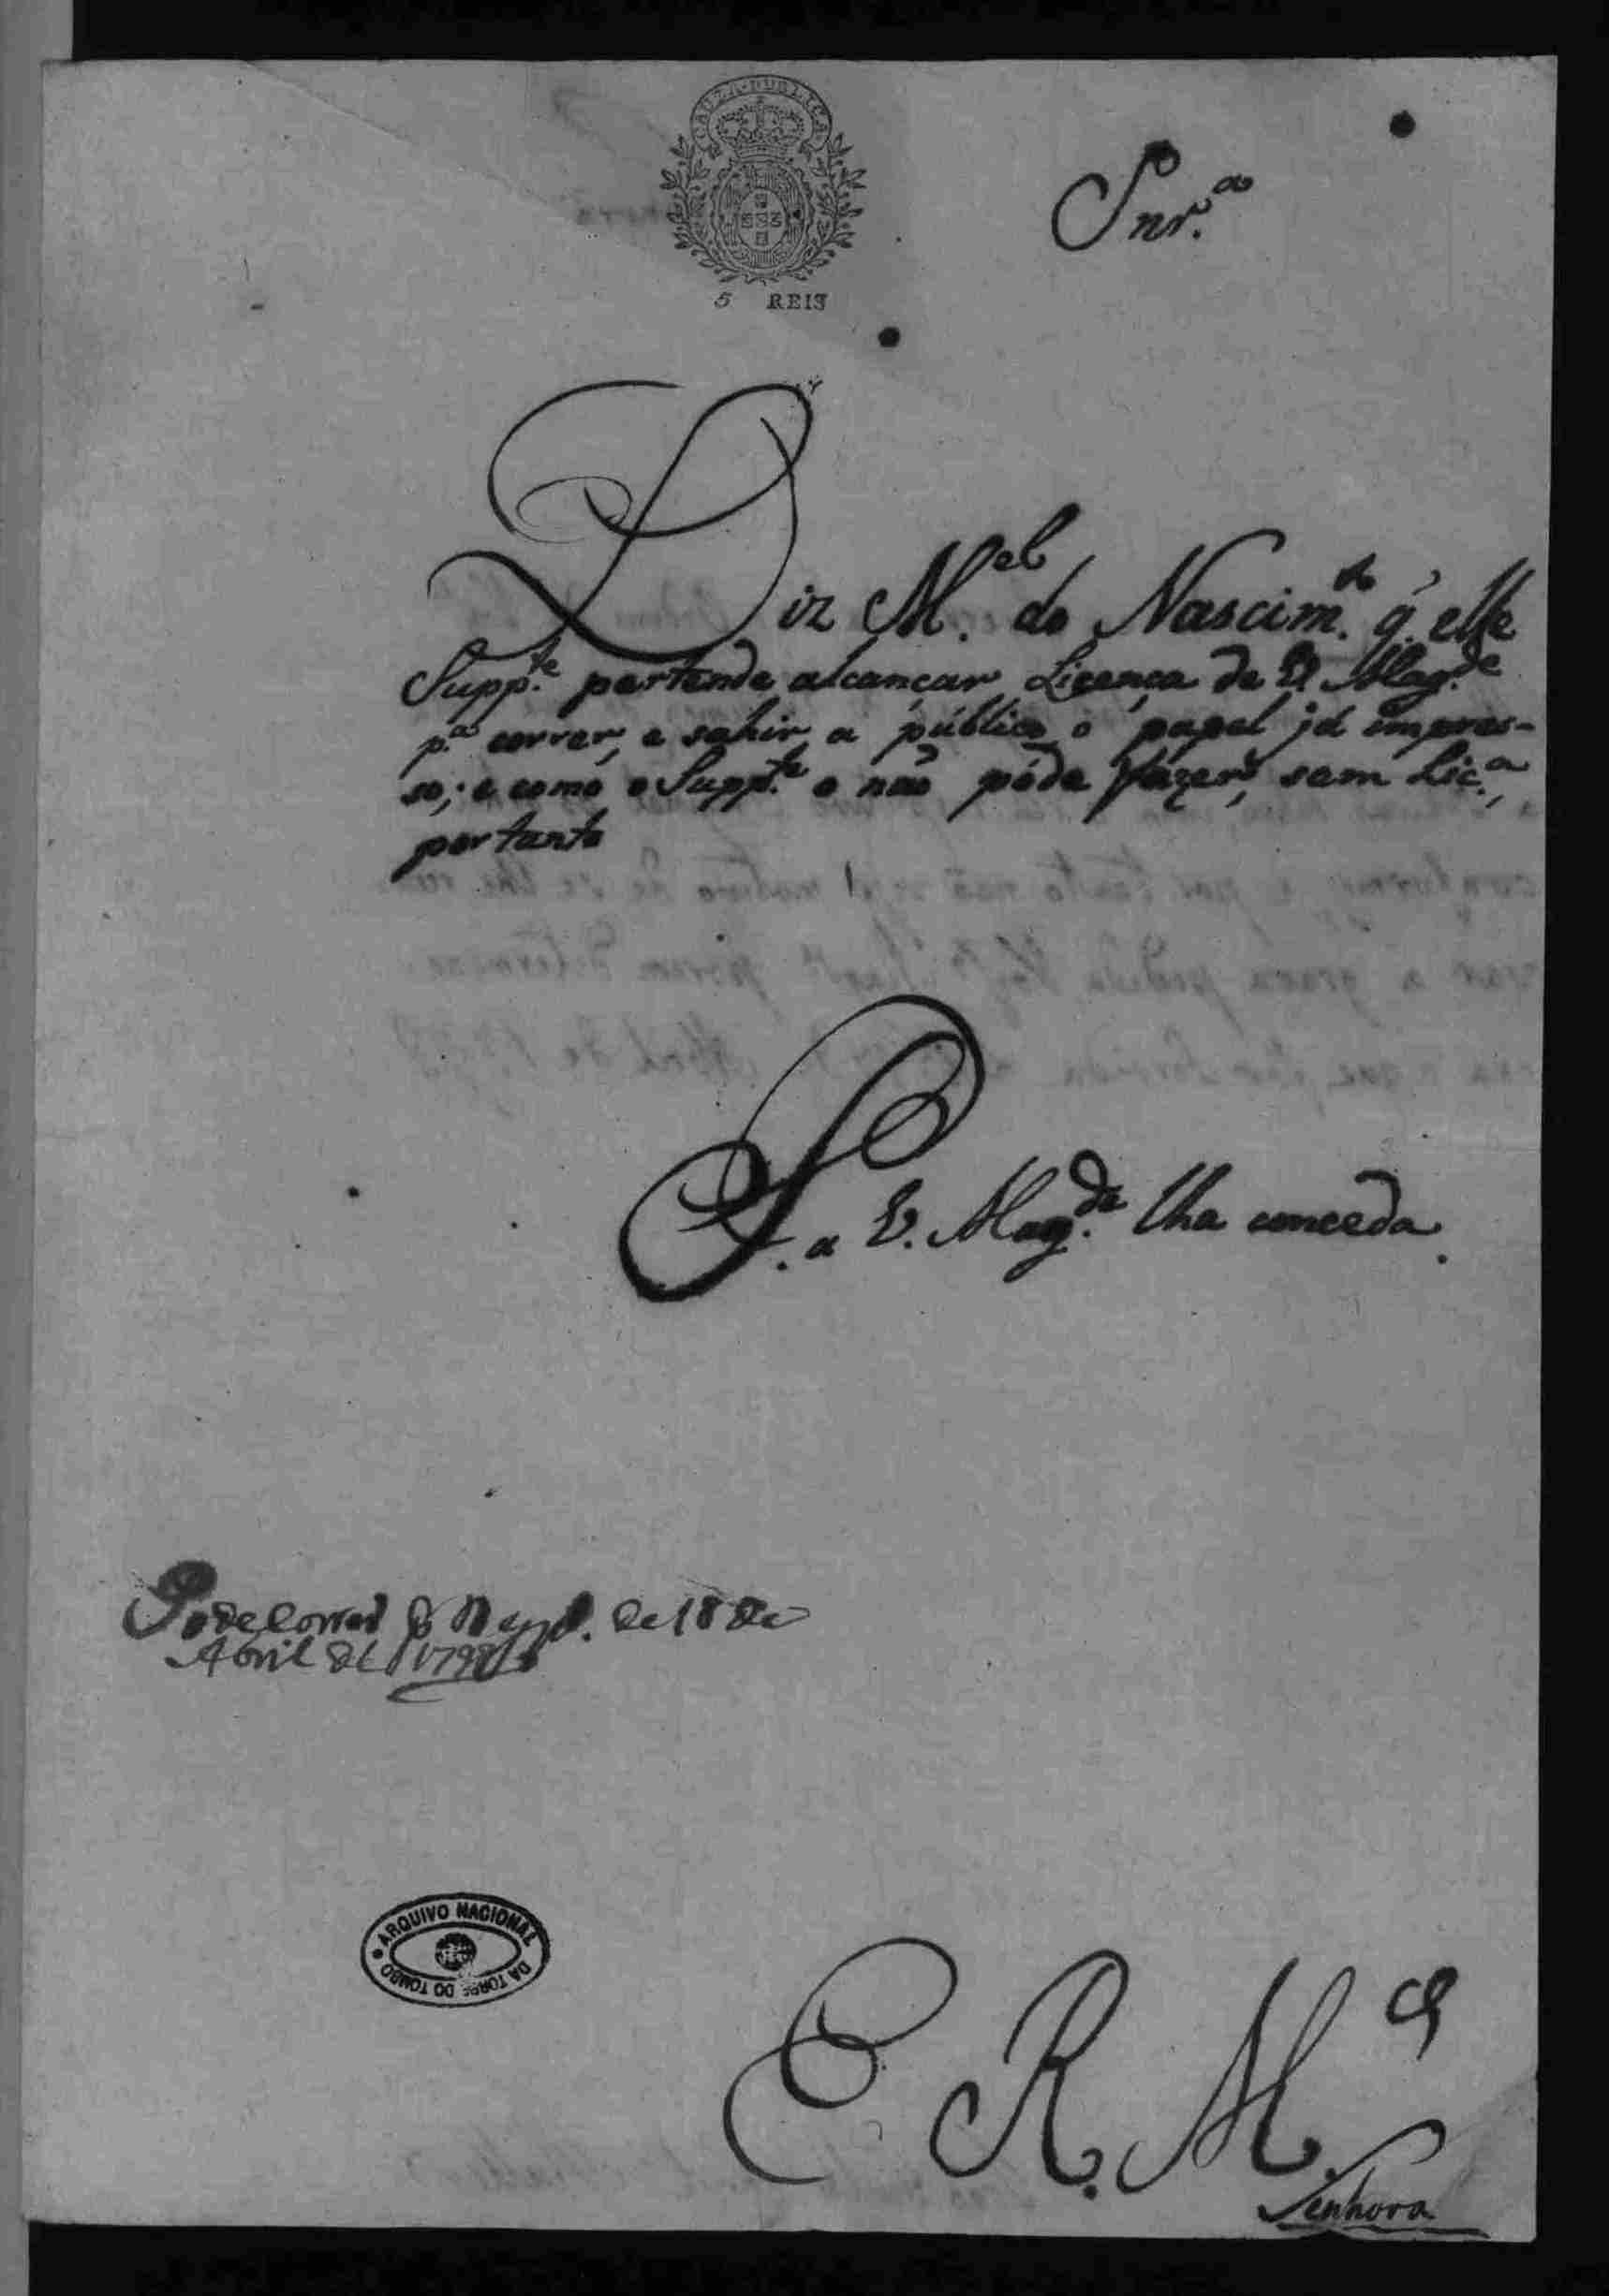 CAUZA PUBLICA
5 REIS
Snr.ª
Diz M.el do Nascim.to q̃ elle
Supp.te pertende alcançar Licença de V. Mag.de
p.ª correr, e sahir a público o papel já impres-
so; e como o Supp.te o não póde fazer, sem Lic.ª,
portanto
P. a V. Mag.de lha conceda.
Pode correr de 18 de
Abril de 1798
ARQUIVO NACIONAL
DA TORRE DO TOMBO
E. R. M.ce
Senhora